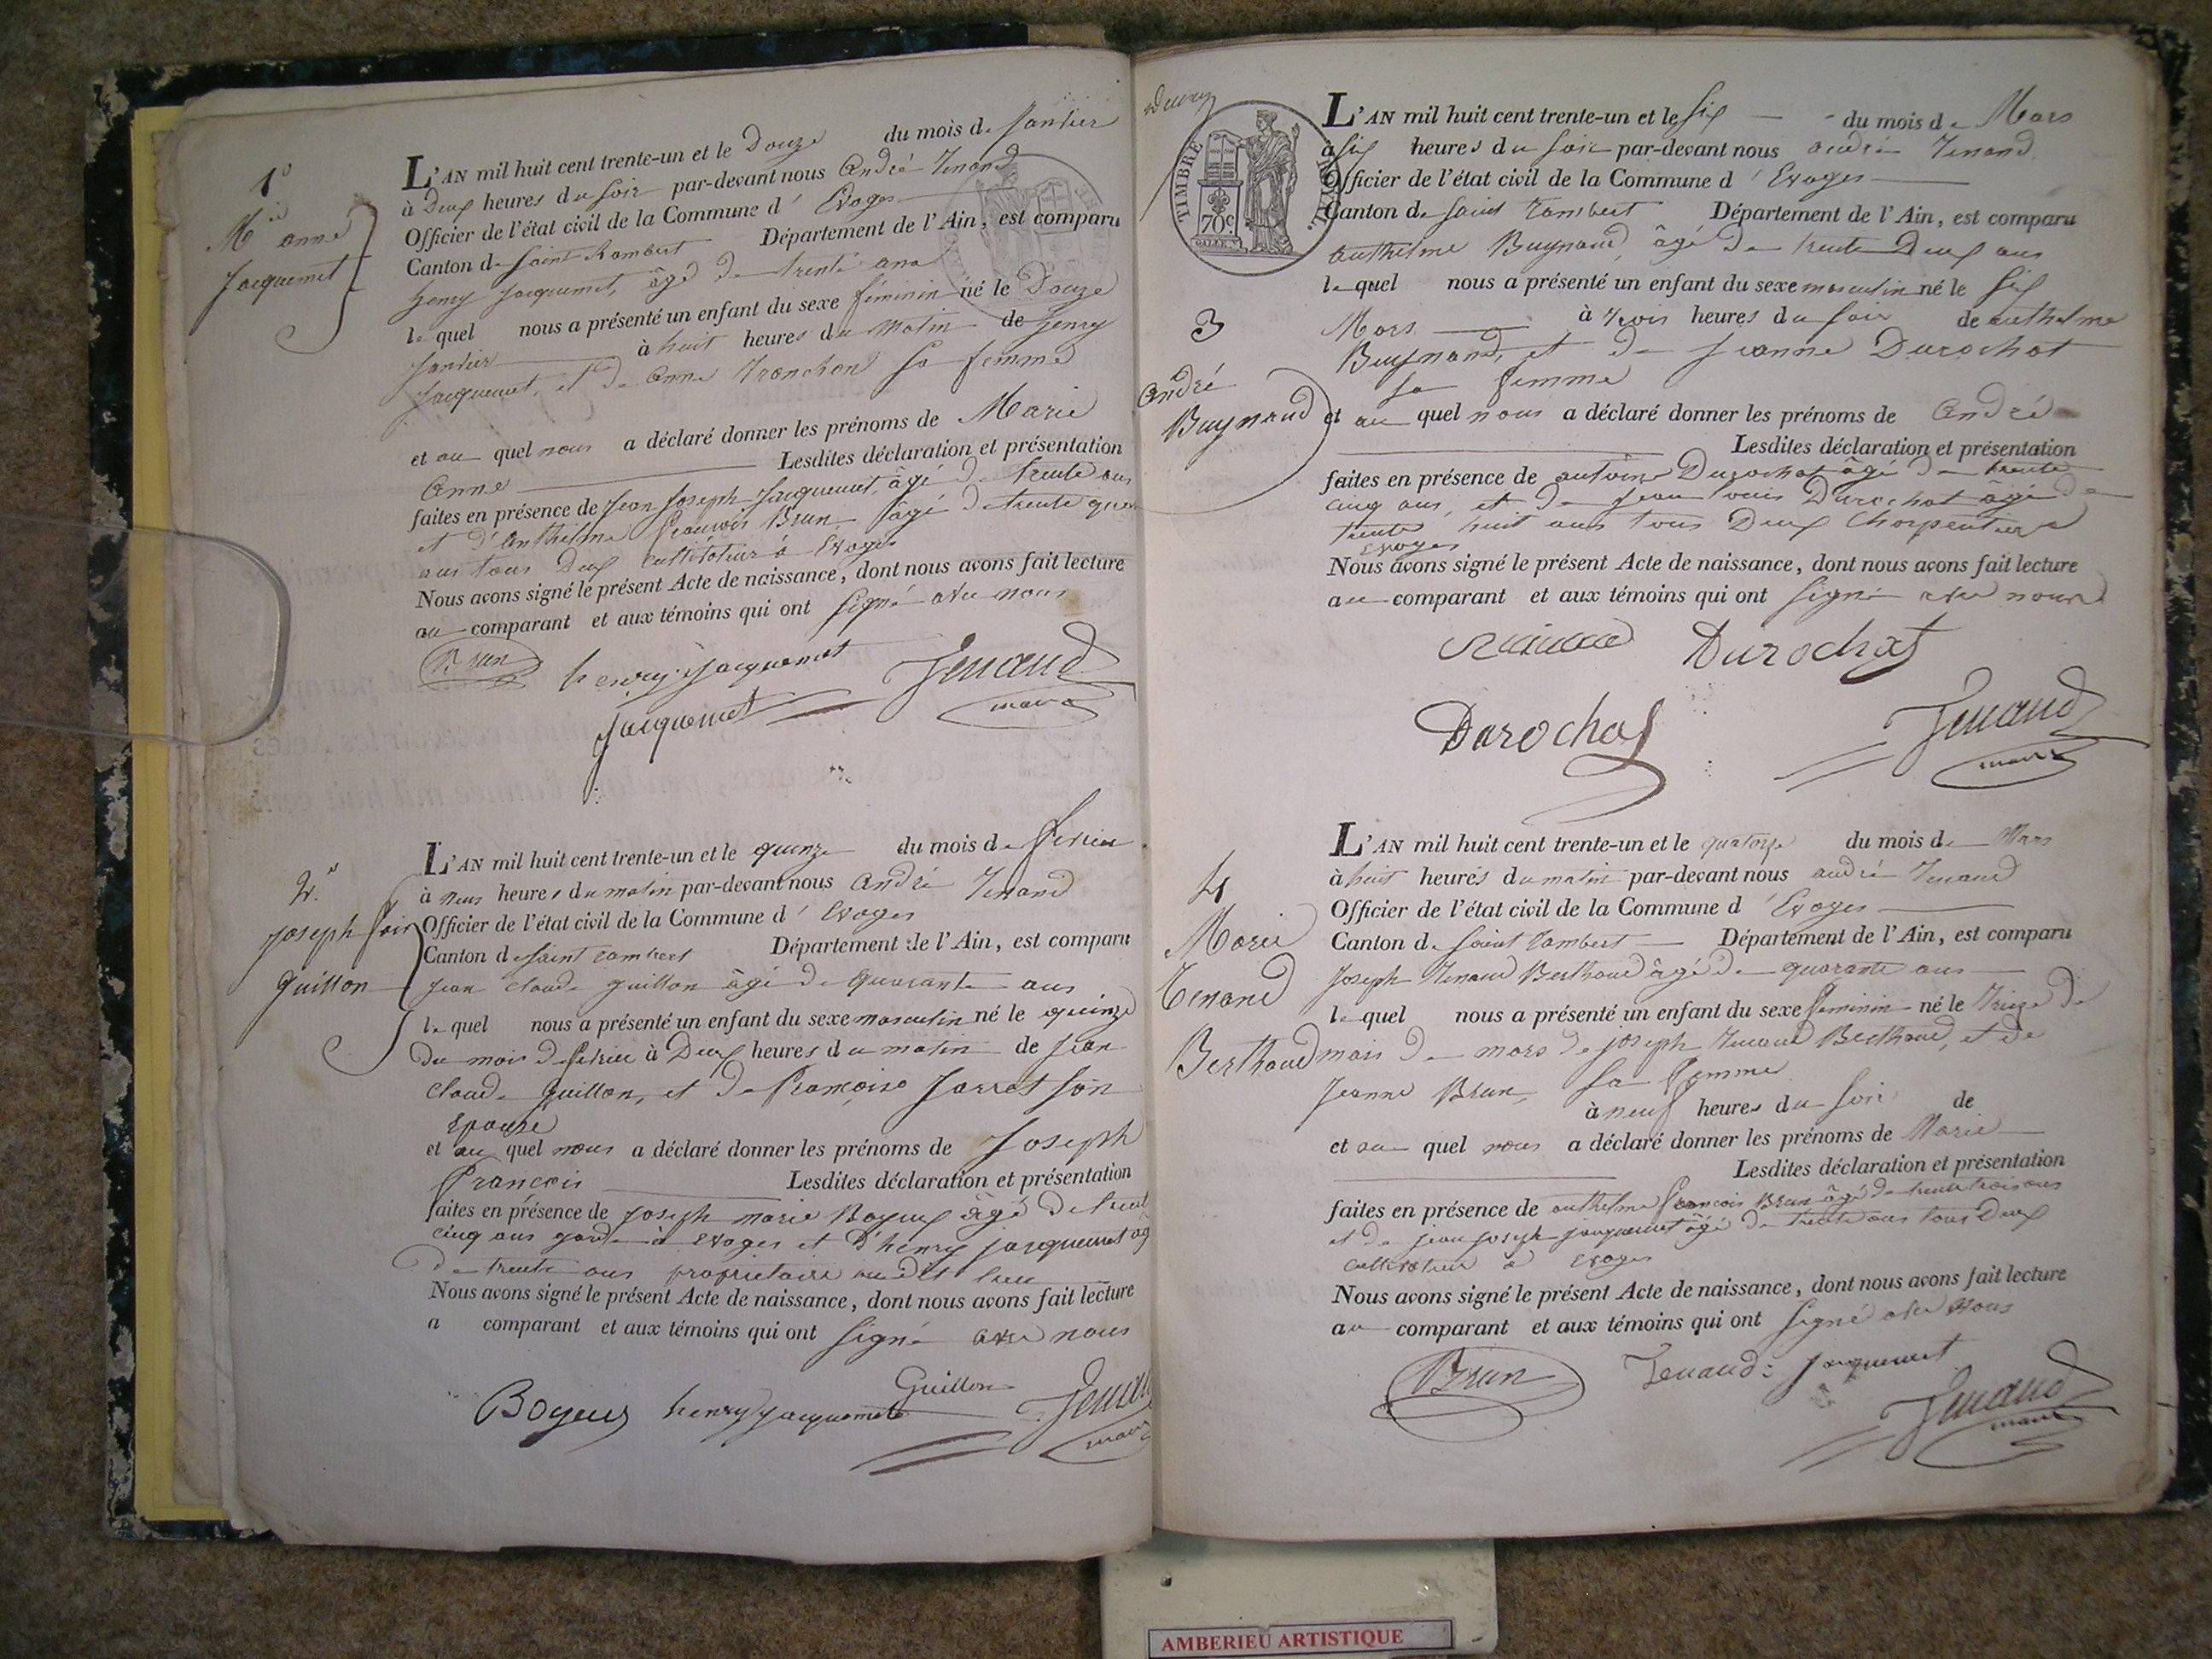 1°
Mie anne
Jacquemet
L'AN mil huit cent trente-un et le Douze du mois de Janvier
à Deux heures du soir par-devant nous André Tenand
Officier de l'état civil de la Commune d'Evoges
Canton de Saint Rambert Département de l'Ain, est comparu
henry Jacquemet, âgé de trente ans
lequel nous a présenté un enfant du sexe féminin né le Douze
Janvier à huit heures du Matin de henry
Jacquemet, et de Anne Tronchon sa femme
et au quel nous a déclaré donner les prénoms de Marie
Anne Lesdites déclaration et présentation
faites en présence de Jean Joseph Jacquemet, âgé de trente ans
et d'Anthelme François Brun âgé de trente quatre
ans tous Deux cultivateur à Evoges
Nous avons signé le présent Acte de naissance, dont nous avons fait lecture
au comparant et aux témoins qui ont signé avec nous
Brun henry Jacquemet Tenand
maire
Jacquemet
2°
joseph fois
guillon
L'AN mil huit cent trente-un et le quinze du mois de fevrier
à neuf heures du matin par-devant nous André Tenand
Officier de l'état civil de la Commune d'Evoges
Canton de saint rambert Département de l'Ain, est comparu
jean claude guillon âgé de quarante ans
lequel nous a présenté un enfant du sexe masculin né le quinze
du mois de fevrier à Deux heures du matin de jean
claude guillon, et de françoise Jarret son
Epouse
et au quel nous a déclaré donner les prénoms de Joseph
François Lesdites déclaration et présentation
faites en présence de joseph marie Boyeux âgé de trente
cinq ans garde à Evoges et d'henry jacquemet agé
de trente ans proprietaire au dit lieu
Nous avons signé le présent Acte de naissance, dont nous avons fait lecture
a comparant et aux témoins qui ont signé avec nous
Guillon
Boyeux henry jacquemet Tenand
maire
TIMBRE ROYAL
70c.
3
André
Buynand
L'AN mil huit cent trente-un et le six du mois de Mars
à six heures du soir par-devant nous andré Tenand
Officier de l'état civil de la Commune d'Evoges
Canton de saint rambert Département de l'Ain, est comparu
anthelme Buynand, âgé de trente Deux ans
lequel nous a présenté un enfant du sexe masculin né le six
Mars à trois heures du soir de anthelme
Buynand, et de jeanne Durochat
sa femme
et au quel nous a déclaré donner les prénoms de André
Lesdites déclaration et présentation
faites en présence de antoine Durochat âgé de trente
cinq ans, et de jean louis Durochat âgé de
trente huit ans tous Deux Charpentier a
Evoges
Nous avons signé le présent Acte de naissance, dont nous avons fait lecture
au comparant et aux témoins qui ont signé avec nous
Durochat
Durochat Tenand
maire
4
Marie
Tenand
Berthoud
L'AN mil huit cent trente-un et le quatorze du mois de Mars
à huit heures du matin par-devant nous andré Tenand
Officier de l'état civil de la Commune d'Evoges
Canton de saint rambert Département de l'Ain, est comparu
joseph Tenand Berthoud âgé de quarante ans
lequel nous a présenté un enfant du sexe feminin né le treize de
mois de mars de joseph Tenand Berthoud, et de
Jeanne Brun, sa femme
à neuf heures du soir de
et au quel nous a déclaré donner les prénoms de Marie
Lesdites déclaration et présentation
faites en présence de anthelme françois Brun âgé de trente trois ans
et de jean joseph jacquemet âgé de trente ans tous Deux
cultivateur à Evoges
Nous avons signé le présent Acte de naissance, dont nous avons fait lecture
au comparant et aux témoins qui ont signé avec nous
Brun Tenand jacquemet
Tenand
maire
AMBERIEU ARTISTIQUE